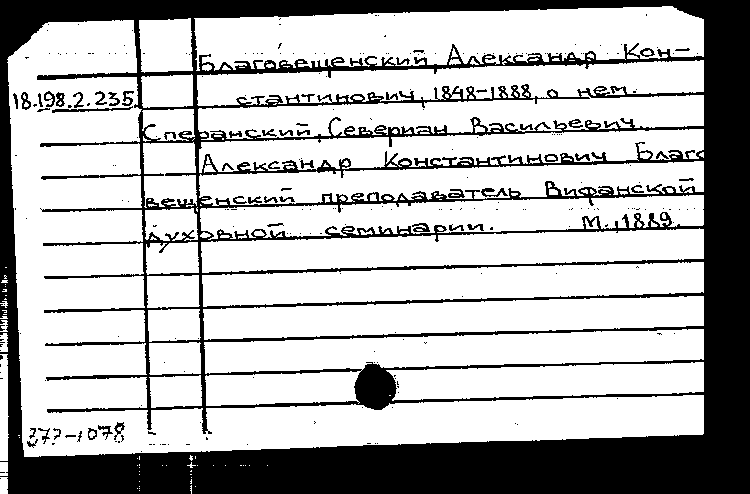 Благовещенский, Александр Кон-
18.198.2.235. стантинович, 1848-1888, о нем.
Сперанский, Севериан Васильевич.
Александр Константинович Благо
вещенский преподаватель Вифанской
духовной семинарии. М., 1889.
377-1078